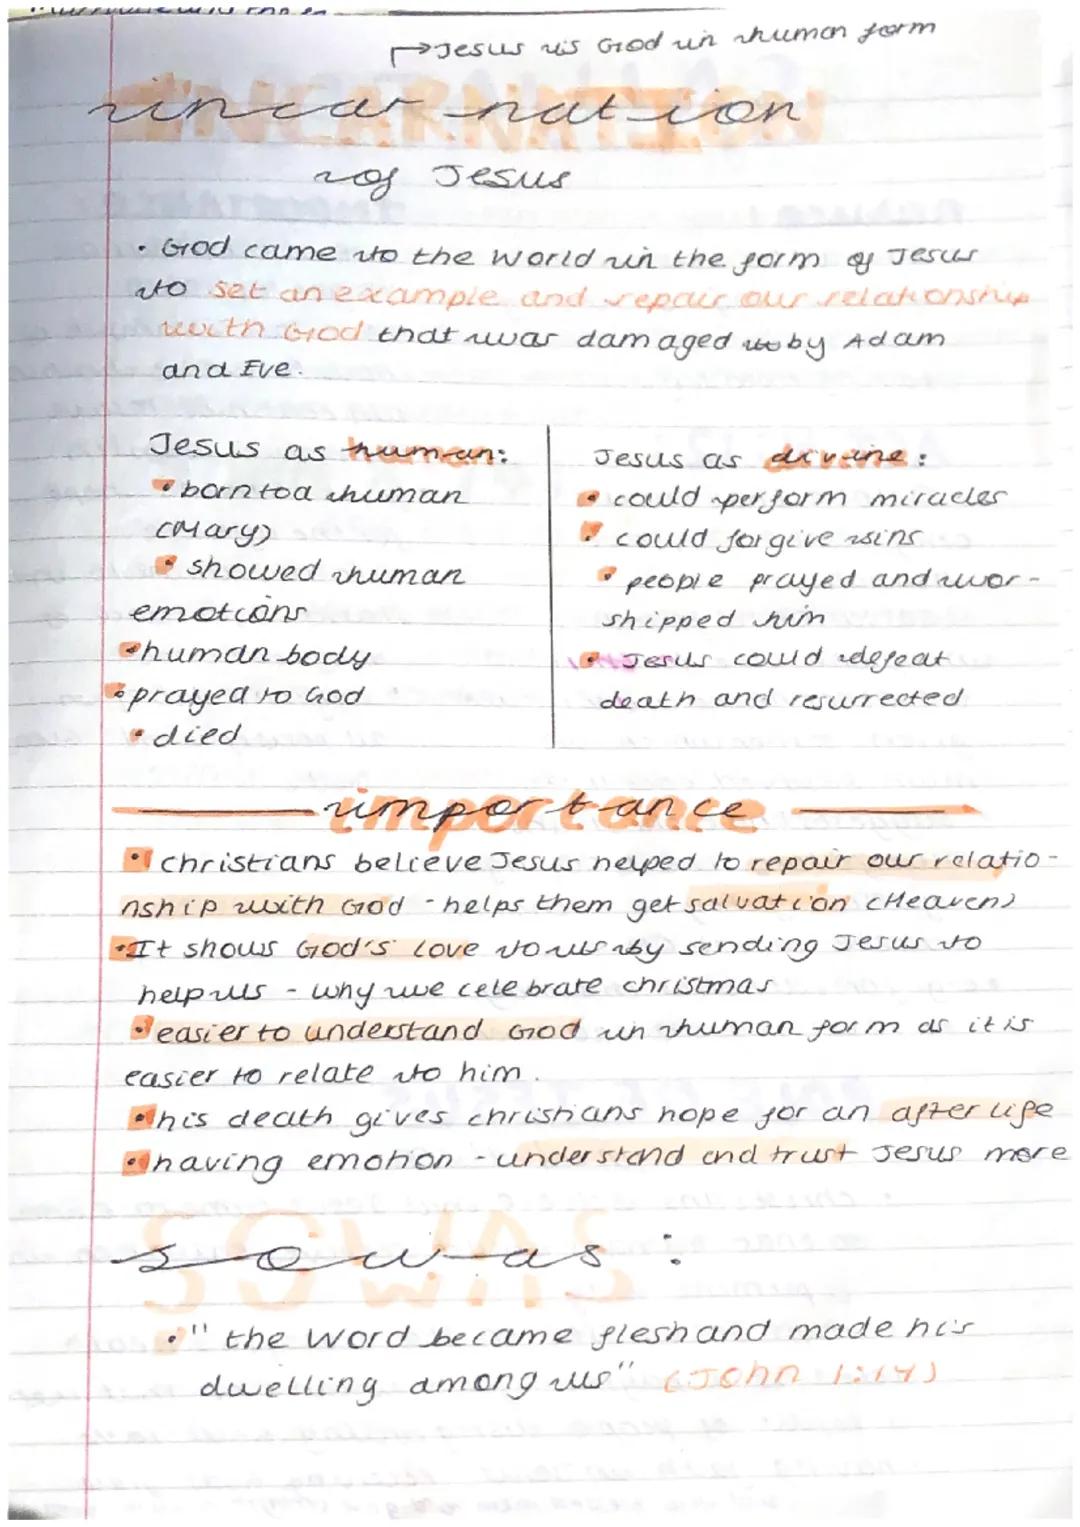 →Jesus is God in human form
incarnation
INCARNATION
of Jesus
• God came to the world in the form of Jesus
to set an example and repair our relationship
with God that was damaged by Adam
and Eve.
Jesus as human:
• born to a human
(Mary)
• showed human
emotions
• human body
• prayed to God
• died
Jesus as divine:
• could perform miracles
• could forgive sins
• people prayed and wor-
shipped him
• Jesus could defeat
death and resurrected
importance
• christians believe Jesus helped to repair our relatio-
nship with God - helps them get salvation (Heaven)
• It shows God's love to us by sending Jesus to
help us - why we celebrate christmas
• easier to understand God in human form as it is
easier to relate to him.
• his death gives christians hope for an after life
• having emotion - understand and trust Jesus more
sowas:
• "the Word became flesh and made his
dwelling among us" (John 1:14)